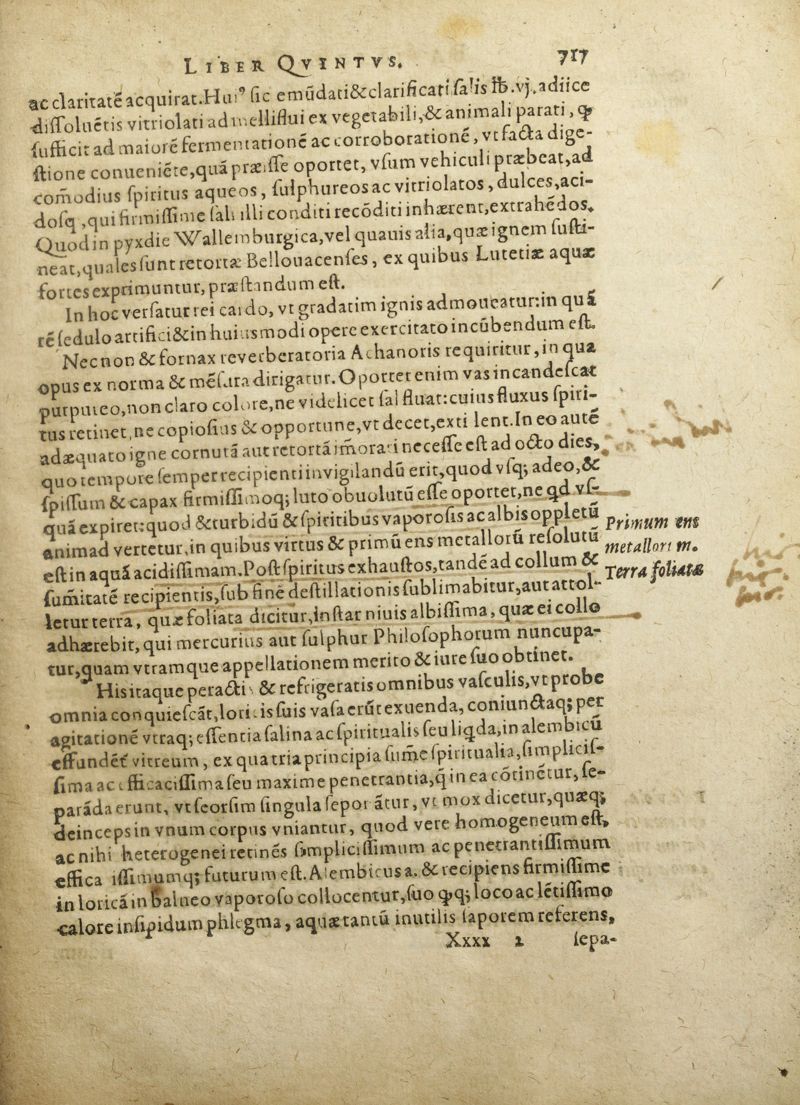 LIBER QVINTVS. 717
ac claritatē acquirat. Huiꝰ sic emūdati & clarificati salis ℔. vj. adiice
dissoluētis vitriolati ad melliflui ex vegetabili, & animali parati, ꝙ
sufficit ad maiorē fermentationē ac corroborationē, vt facta dige-
stione conueniēte, quā præisse oportet, vsum vehiculi præbeat, ad
com̄odius spiritus aqueos, sulphureos ac vitriolatos, dulces, aci-
dosq́, qui firmissime sali illi conditi recōditi inhærent, extrahēdos.
Quod in pyxdie Wallemburgica, vel quauis alia, quæ ignem susti-
neat, quales sunt retortæ Bellouacenses, ex quibus Lutetiæ aquæ
fortes exprimuntur, præstandum est.
In hoc versatur rei cardo, vt gradatim ignis admoueatur: in quā
rē sedulo artifici & in huiusmodi opere exercitato incūbendum est.
Nec non & fornax reverberatoria Achanoris requiritur, in qua
opus ex norma & mēsura dirigatur. Oportet enim vas incandescat
purpureo, non claro colore, ne videlicet sal fluat: cuius fluxus spiri-
tus retinet, ne copiosius & opportune, vt decet, exti lent. In eo autē
adæquato igne cornutā aut retortā im̄orari necesse est ad octo dies,
quo tempore semper recipienti invigilandū erit, quod vsq; adeo, &
spissum & capax firmissimoq; luto obuolutū esse oportet, ne qd vs-
quā expiret: quod & turbidū & spiritibus vaporosis ac albis oppletū
animad vertetur, in quibus virtus & primū ens metallorū resolutū
est in aquā acidissimam. Post spiritus exhaustos, tandē ad collum &
sum̄itatē recipientis, sub finē destillationis sublimabitur, aut attol-
letur terra, quæ foliata dicitur, instar niuis albissima, quæ ei collo
adhærebit, qui mercurius aut sulphur Philosophorum nuncupa-
tur, quam vtramque appellationem merito & iure suo obtinet.
Primum ens
metallorū m.
Terra foliata
His itaque peractis & refrigeratis omnibus vasculis, vt probe
omnia conquiescāt, loricis suis vasa erūt exuenda, coniunctaq; per
agitationē vtraq; essentia salina ac spiritualis seu liqda, in alembicū
effundēt vitreum, ex qua tria principia sum̄e spiritualia, simplicis-
sima ac efficacissima seu maxime penetrantia, q̄ in ea cōtinetur, se-
parāda erunt, vt seorsim singula sepor ātur, vt mox dicetur, quæq;
deinceps in vnum corpus vniantur, quod vere homogeneum est,
ac nihil heterogenei retinēs simplicissimum ac penetrantissimum
effica issimumq; futurum est. Alembicus a. & recipiens firmissime
in loricā in Balneo vaporoso collocentur, suo ꝙq; loco ac lētissimo
calore insipidum phlegma, aquæ tantū inutilis saporem referens,
Xxxx 2 sepa-